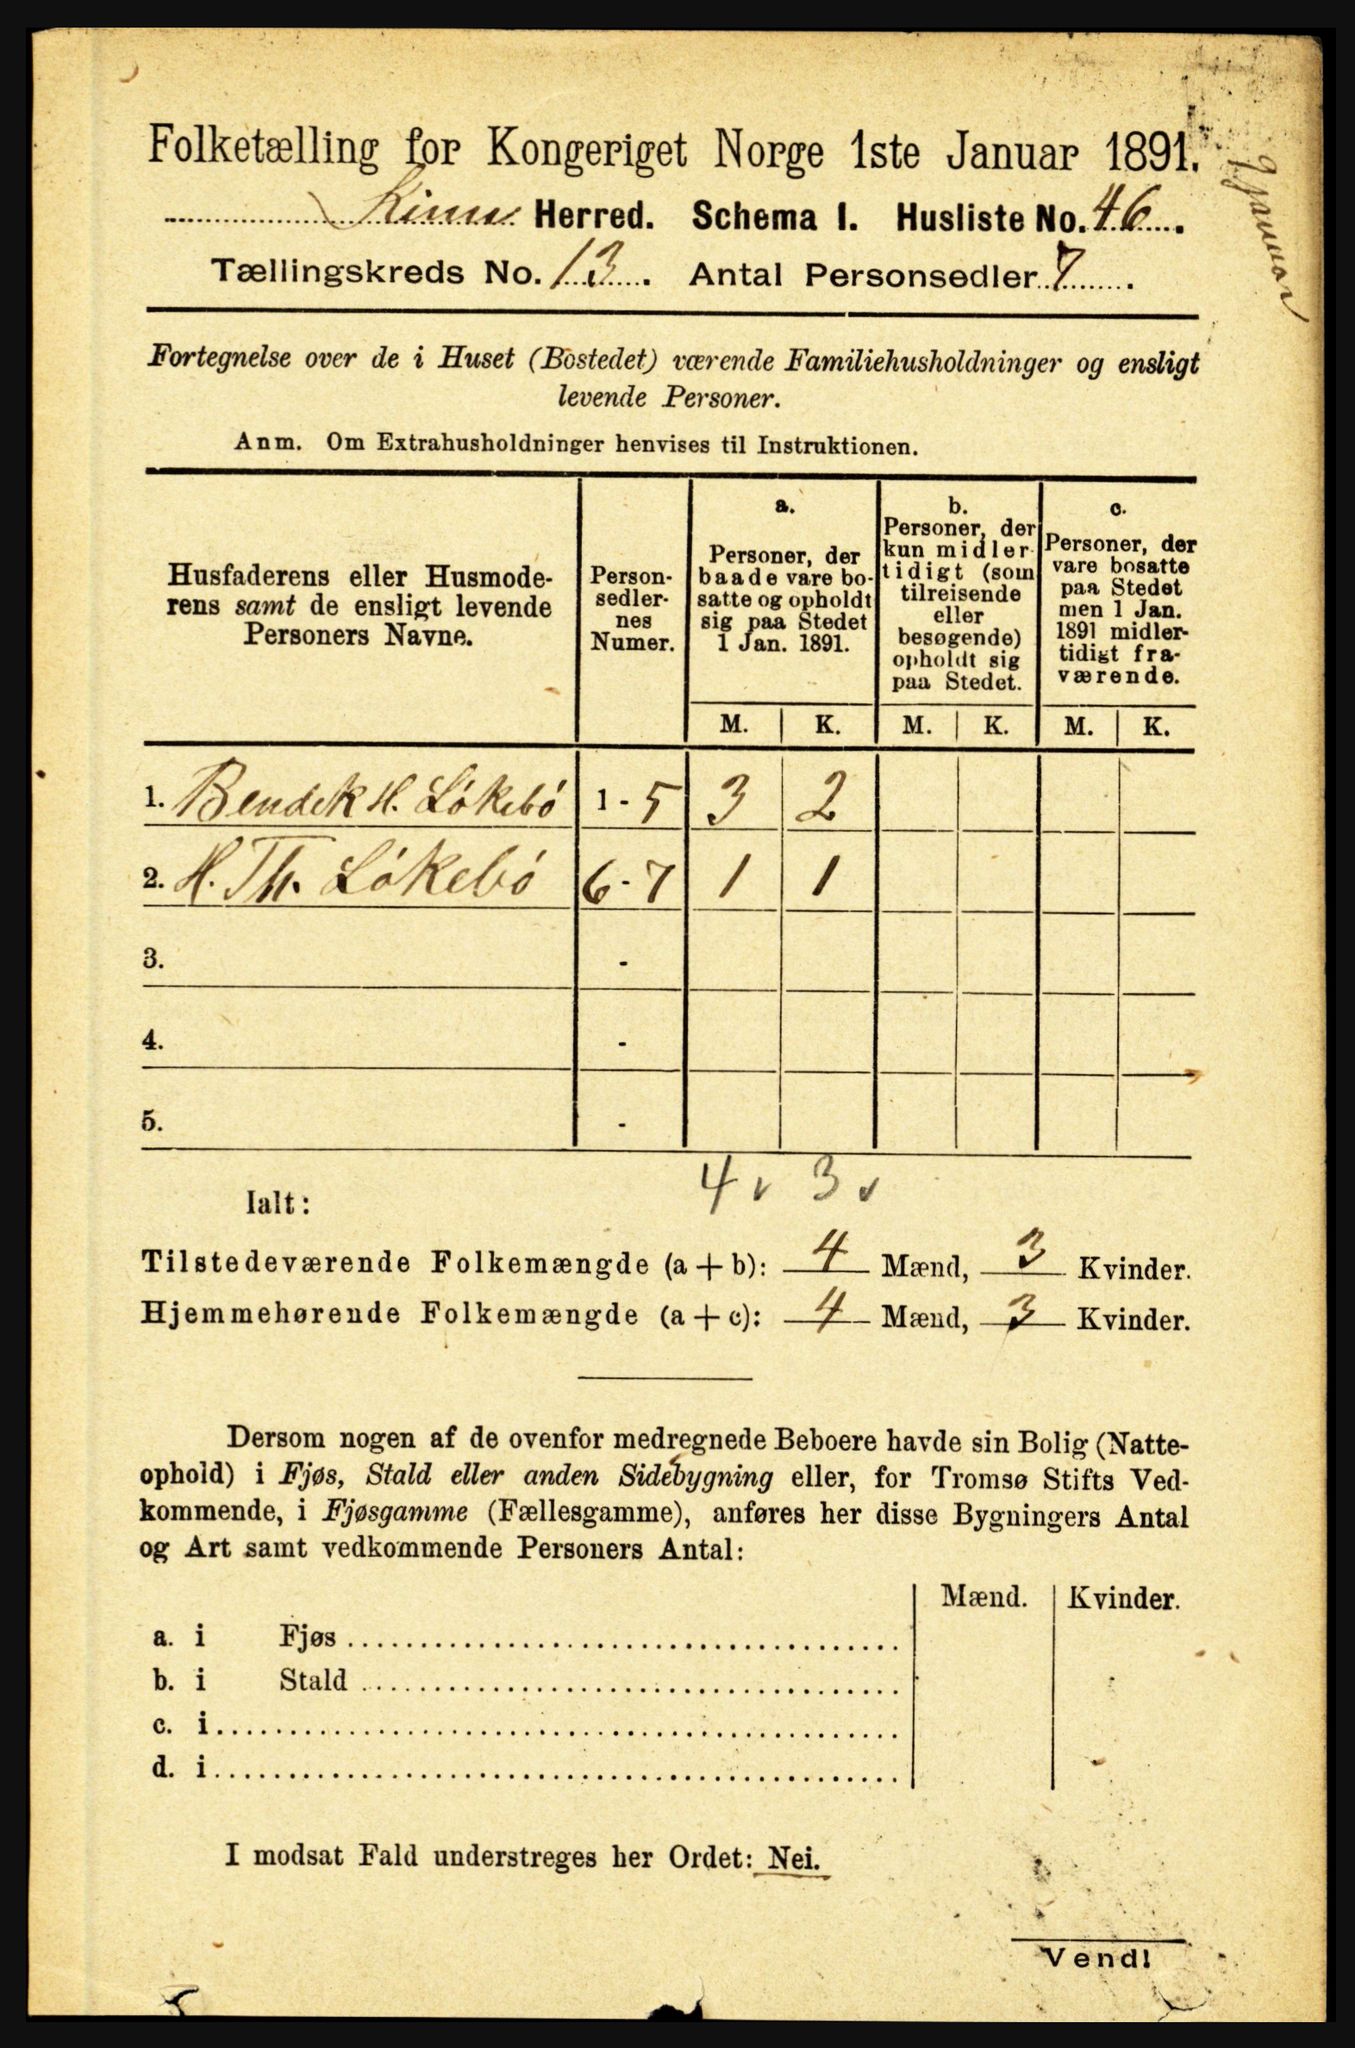 Folketælling for Kongeriget Norge 1ste Januar 1891.
9 Januar
Kinn Herred. Schema I. Husliste No. 46.
Tællingskreds No. 13. Antal Personsedler 7.
Fortegnelse over de i Huset (Bostedet) værende Familiehusholdninger og ensligt
levende Personer.
Anm. Om Extrahusholdninger henvises til Instruktionen.
Husfaderens eller Husmode-
rens samt de ensligt levende
Personers Navne.
Person-
sedler-
nes
Numer.
a.
Personer, der
baade vare bo-
satte og opholdt
sig paa Stedet
1 Jan. 1891.
b.
Personer, der
kun midler-
tidigt (som
tilreisende
eller
besøgende)
opholdt sig
paa Stedet.
c.
Personer, der
vare bosatte
paa Stedet
men 1 Jan.
1891 midler-
tidigt fra-
værende.
M. K. M. K. M. K.
1. Bendik H. Løkebó 1 - 5 3 2
2. H. Th. Løkebó 6 - 7 1 1
3. -
4. -
5. -
4 v 3 v
Ialt:
Tilstedeværende Folkemængde (a + b): 4 Mænd, 3 Kvinder.
Hjemmehørende Folkemængde (a + c): 4 Mænd, 3 Kvinder.
Dersom nogen af de ovenfor medregnede Beboere havde sin Bolig (Natte-
ophold) i Fjøs, Stald eller anden Sidebygning eller, for Tromsø Stifts Ved-
kommende, i Fjøsgamme (Fællesgamme), anføres her disse Bygningers Antal
og Art samt vedkommende Personers Antal:
Mænd. Kvinder.
a. i Fjøs
b. i Stald
c. i
d. i
I modsat Fald understreges her Ordet: Nei.
Vend!